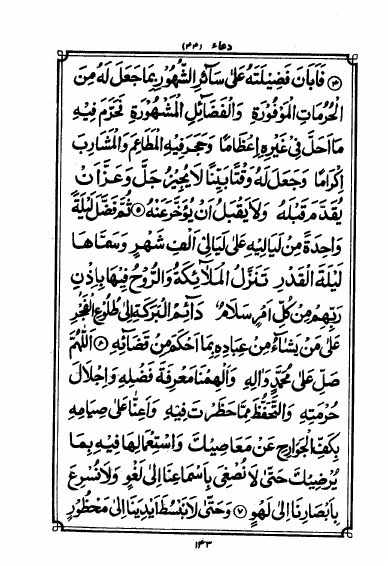 دعاء (۴۴)
④ فَاَبَانَ فَضِيْلَتَهُ عَلٰى سَآئِرِ الشُّهُوْرِ بِمَا جَعَلَ لَهُ مِنَ
الْحُرُمَاتِ الْمَوْفُوْرَةِ وَالْفَضَآئِلِ الْمَشْهُوْرَةِ فَحَرَّمَ فِيْهِ
مَا اَحَلَّ فِيْ غَيْرِهٖ اِعْظَامًا وَحَجَرَ فِيْهِ الْمَطَاعِمَ وَالْمَشَارِبَ
اِكْرَامًا وَجَعَلَ لَهُ وَقْتًا بَيِّنًا لَا يُجِيْزُ جَلَّ وَعَزَّ اَنْ
يُقَدَّمَ قَبْلَهُ وَلَا يَقْبَلُ اَنْ يُؤَخَّرَ عَنْهُ ⑤ ثُمَّ فَضَّلَ لَيْلَةً
وَاحِدَةً مِنْ لَيَالِيْهِ عَلٰى لَيَالِيْ اَلْفِ شَهْرٍ وَسَمَّاهَا
لَيْلَةَ الْقَدْرِ تَنَزَّلُ الْمَلَآئِكَةُ وَالرُّوْحُ فِيْهَا بِاِذْنِ
رَبِّهِمْ مِنْ كُلِّ اَمْرٍ سَلَامٌ دَآئِمُ الْبَرَكَةِ اِلٰى طُلُوْعِ الْفَجْرِ
عَلٰى مَنْ يَشَآءُ مِنْ عِبَادِهٖ بِمَا اَحْكَمَ مِنْ قَضَآئِهٖ ⑥ اَللّٰهُمَّ
صَلِّ عَلٰى مُحَمَّدٍ وَاٰلِهٖ وَاَلْهِمْنَا مَعْرِفَةَ فَضْلِهٖ وَاِجْلَالَ
حُرْمَتِهٖ وَالتَّحَفُّظَ مِمَّا حَظَرْتَ فِيْهِ وَاَعِنَّا عَلٰى صِيَامِهٖ
بِكَفِّ الْجَوَارِحِ عَنْ مَعَاصِيْكَ وَاسْتِعْمَالِهَا فِيْهِ بِمَا
يُرْضِيْكَ حَتّٰى لَا نُصْغِيَ بِاَسْمَاعِنَا اِلٰى لَغْوٍ وَلَا نُسْرِعَ
بِاَبْصَارِنَا اِلٰى لَهْوٍ ⑦ وَحَتّٰى لَا نَبْسُطَ اَيْدِيَنَا اِلٰى مَحْظُوْرٍ
۱۴۳